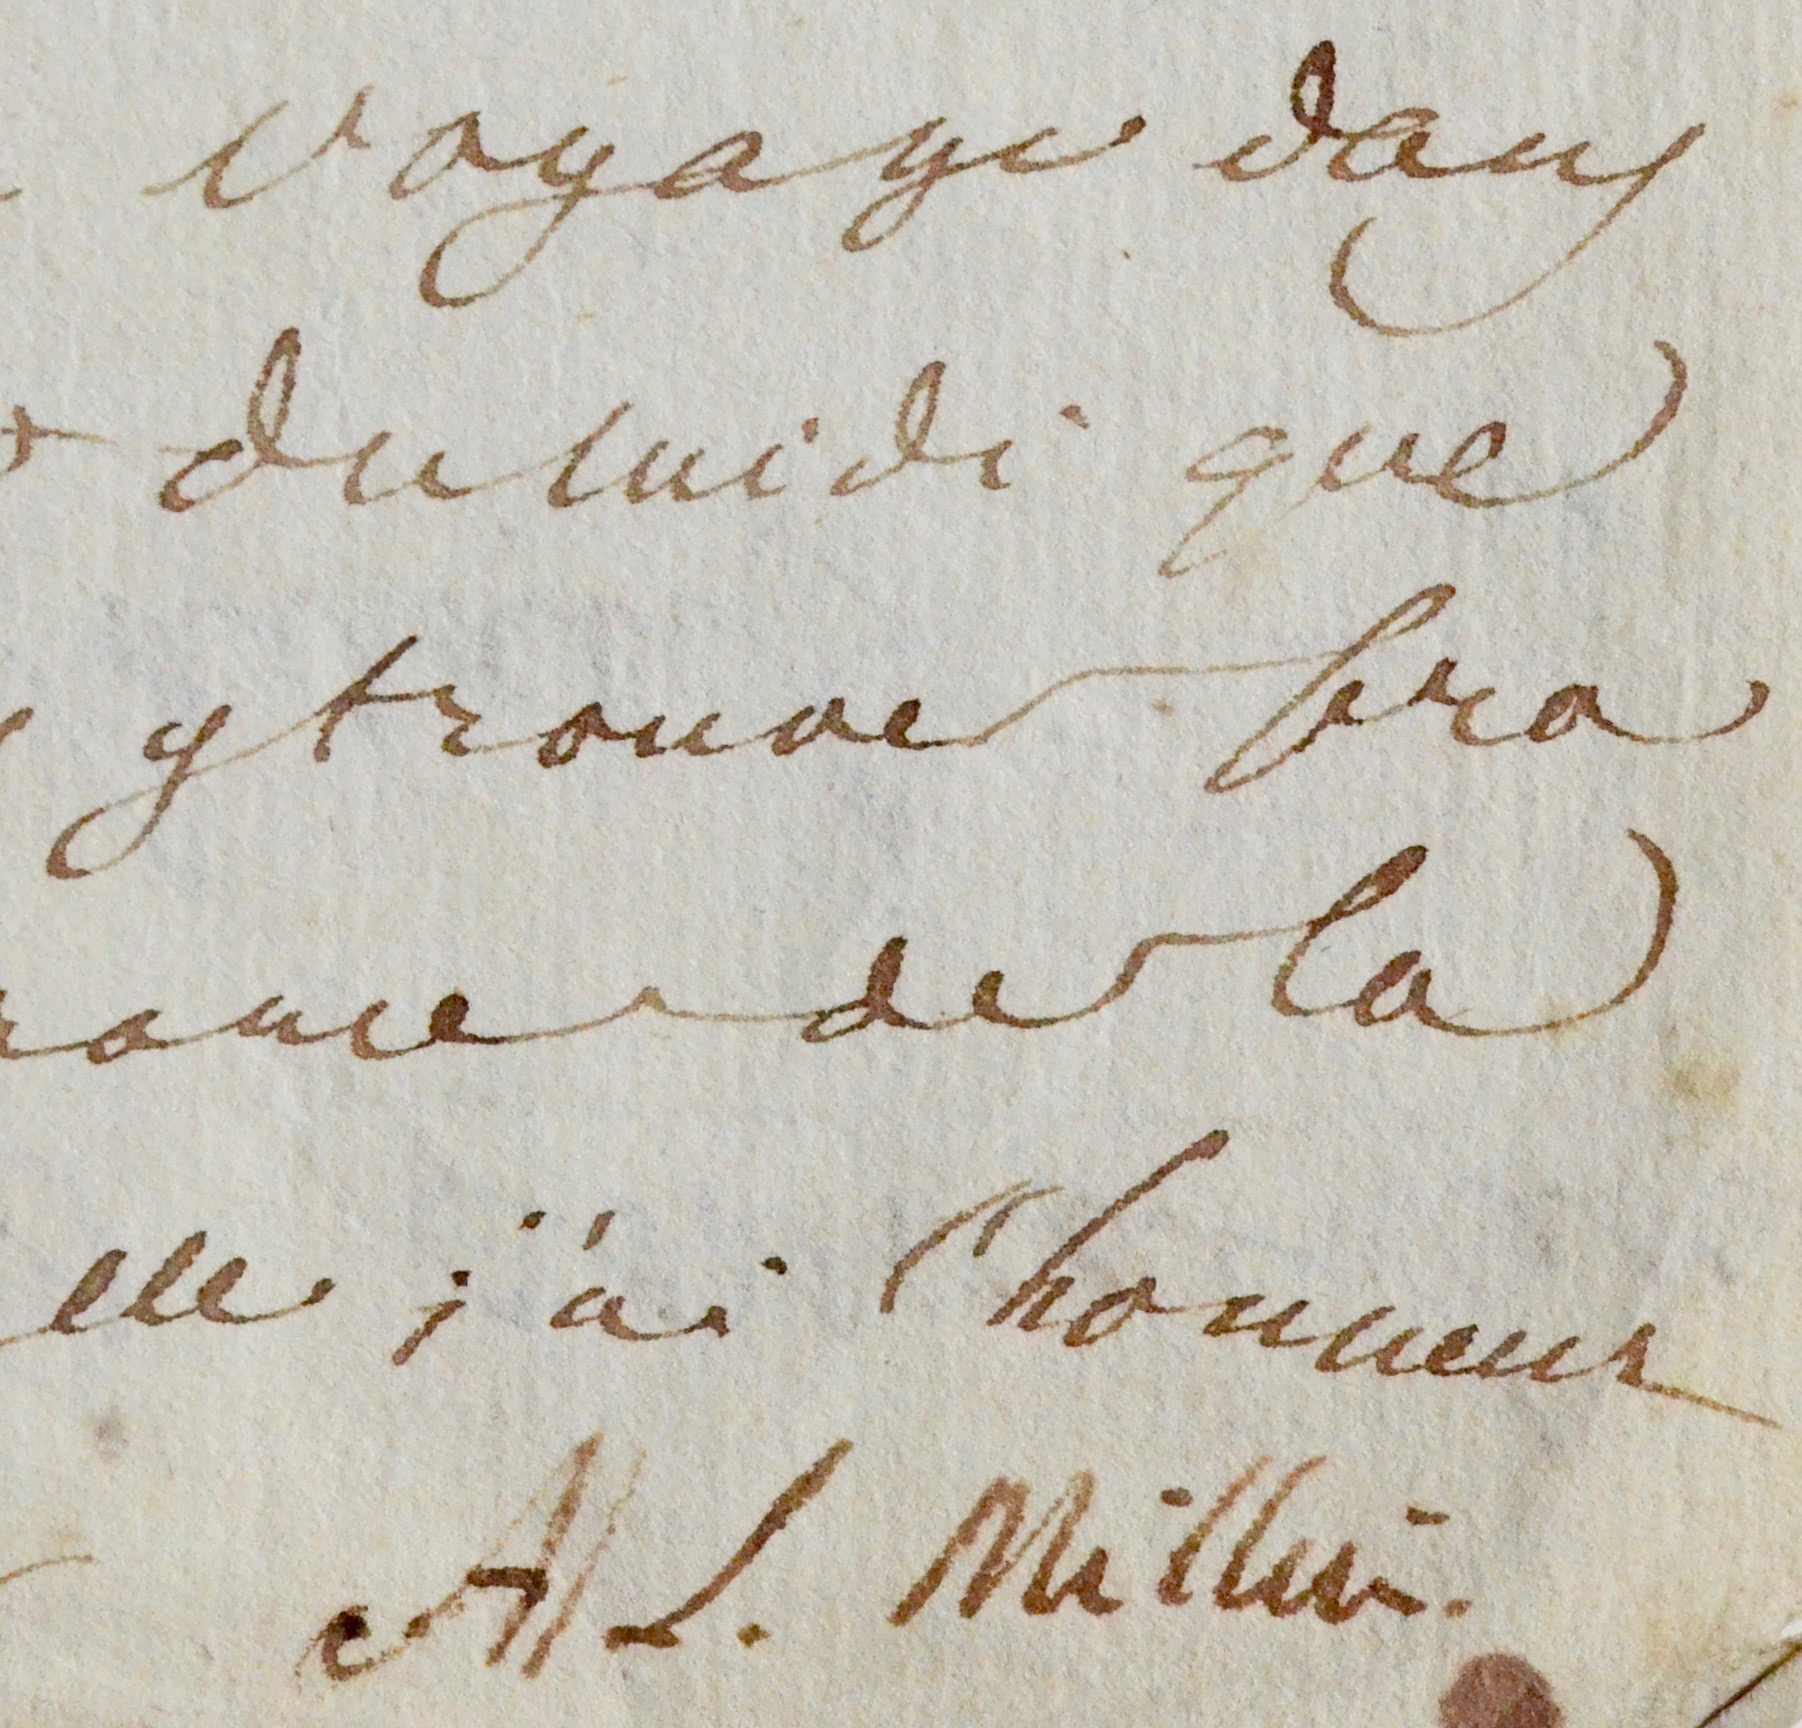 voyage dans
du midi que
y trouve sera
de la
elle j'ai l'honneur
A L. Millin.